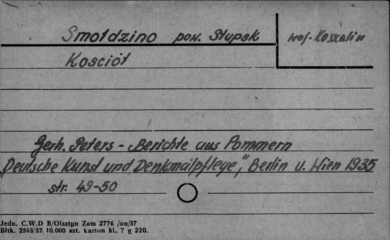 Smołdzino pow. Słupsk
woj. Koszalin
Kościół
Gerh. Peters - Berichte aus Pommern
„Deutsche Kunst und Denkmalpflege", Berlin u. Wien 1935
str. 49-50
Jedn. C.W.D B/Olsztyn Zam 2776 /oo/57
Bltk. 2563/57 10.000 szt. karton kl. 7 g 220.